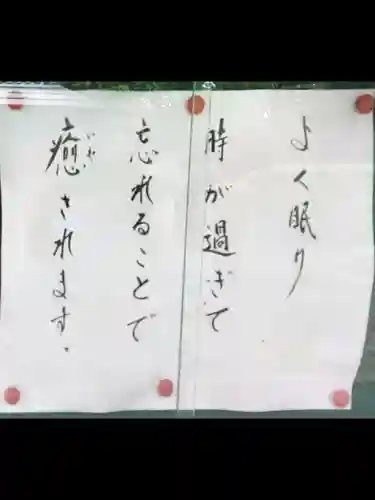 よく眠り
時が過ぎて
忘れることで
癒されます。
いや